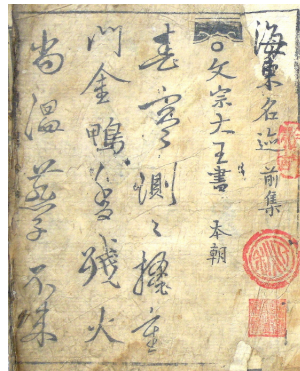 海東名迹 前集
○文宗大王書 本朝
春寒惻々掩重
門金鴨香殘火
尚溫燕子不來